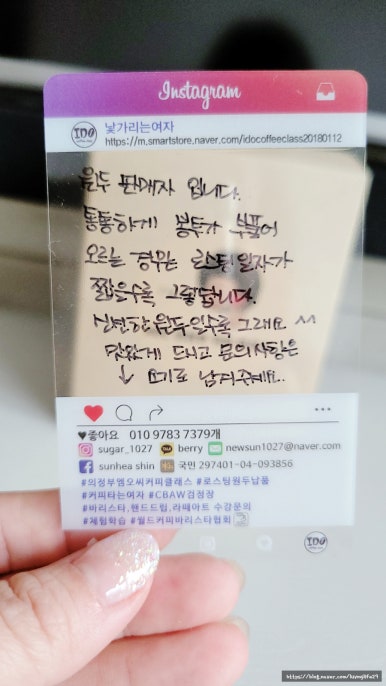 Instagram
IDO
낯가리는여자
https://m.smartstore.naver.com/idocoffeeclass20180112
원두 판매자 입니다.
통통하게 봉투가 부풀어
오르는 경우는 로스팅 일자가
짧을수록 그렇답니다.
신선한 원두일수록 그래요 ^^
맛있게 드시고 문의사항은
↓ 여기로 남겨주세요..
♥좋아요 010 9783 7379개
sugar_1027 berry newsun1027@naver.com
sunhea shin 국민 297401-04-093856
#의정부엠오씨커피클래스 #로스팅원두납품
#커피타는여자 #CBAW검정장
#바리스타,핸드드립,라떼아트 수강문의
#체험학습 #월드커피바리스타협회
IDO
https://blog.naver.com/hyonglife29